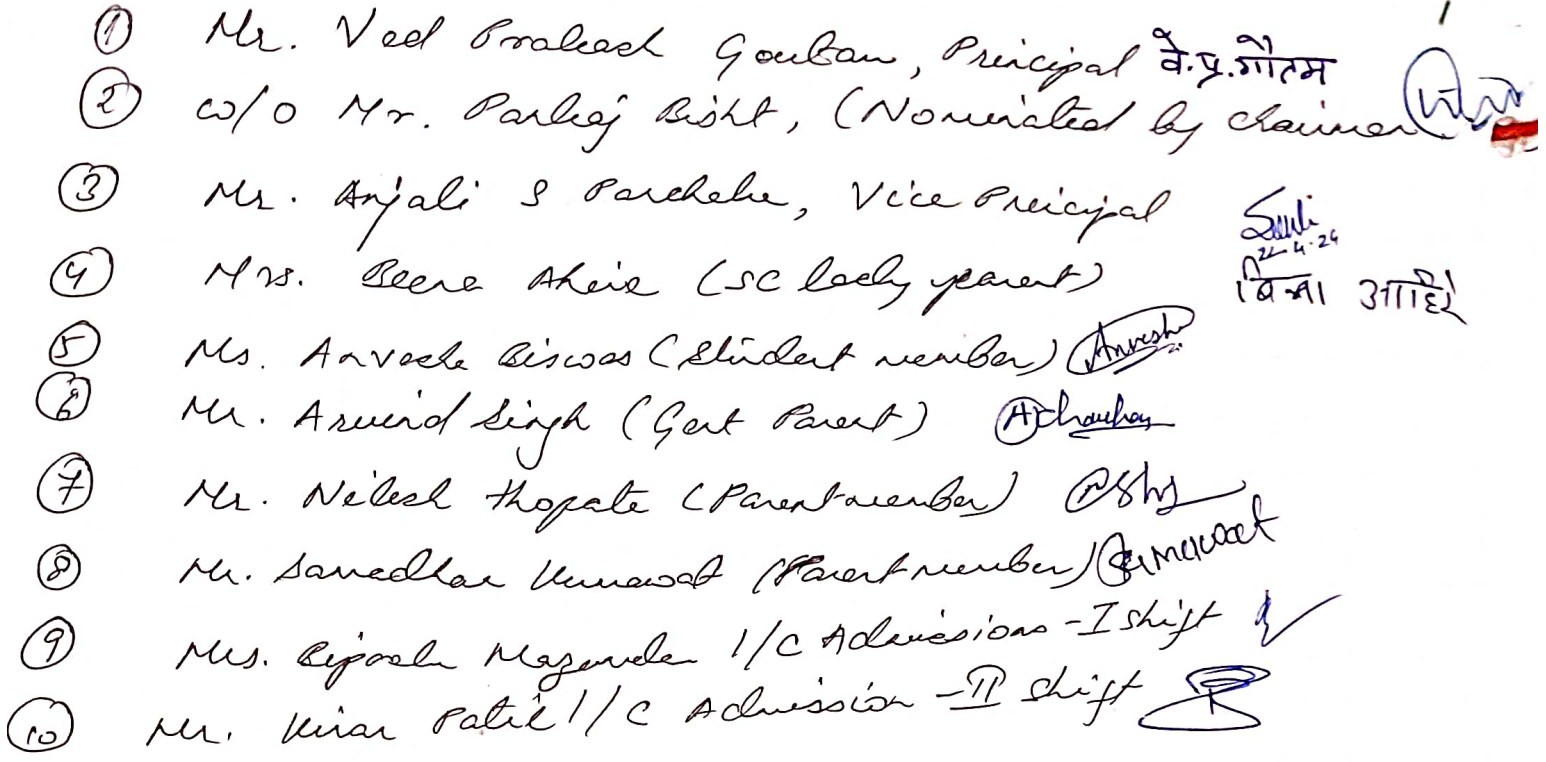 ① Mr. Ved Prakash Goutam, Principal वे.प्र.गौतम
② w/o Mr. Pankaj Bisht, (Nominated by chairman
③ Mr. Anjali S , Vice Principal
22-4-24
④ Mrs. Beena Ahire (SC lady parent) बिना आहिरे
⑤ Ms. Anvesha Biswas (Student member) Anvesha
⑥ Mr. Arvind Singh (Govt Parent) AChauhan
⑦ Mr. Nilesh Thopate (Parent member)
⑧ Mr. Kumawat (Parent member) Kumawat
⑨ Mrs. Bipasha Mazumder I/C Admissions - I shift
⑩ Mr. Kiran Patil I/C Admission - II shift